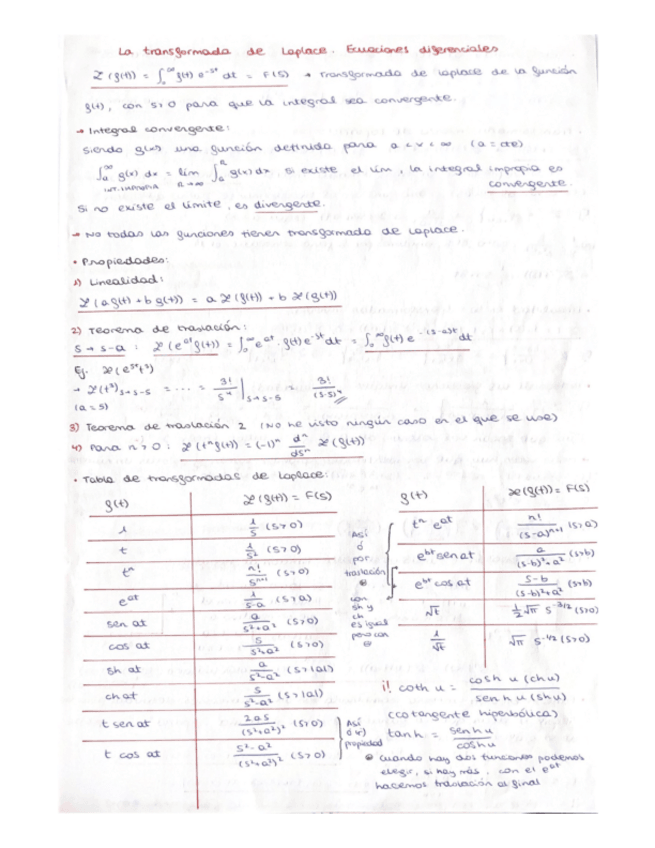 La transformada de Laplace. Ecuaciones diferenciales
ℒ(f(t)) = ∫₀^∞ f(t) e^-st dt = F(s) → Transformada de Laplace de la función
f(t), con s>0 para que la integral sea convergente.
→ Integral convergente:
Siendo g(x) una función definida para a < x < ∞ (a = cte)
∫ₐ^∞ g(x) dx = lim ∫ₐ^R g(x) dx si existe el lím, la integral impropia es
INT. IMPROPIA R→∞ convergente.
Si no existe el límite, es divergente.
→ No todas las funciones tienen transformada de Laplace.
• Propiedades:
1) Linealidad:
ℒ(a f(t) + b g(t)) = a ℒ(f(t)) + b ℒ(g(t))
2) Teorema de traslación:
s → s-a : ℒ(e^at f(t)) = ∫₀^∞ e^at · f(t) e^-st dt = ∫₀^∞ f(t) e^-(s-a)t dt
Ej. ℒ(e^5t t³)
→ ℒ(t³)s→s-5 = ... = 3!/s⁴ |s→s-5 = 3!/(s-5)⁴
(a = 5)
3) Teorema de traslación 2 (No he visto ningún caso en el que se use)
4) Para n > 0 : ℒ(tⁿ f(t)) = (-1)ⁿ dⁿ/dsⁿ ℒ(f(t))
• Tabla de transformadas de Laplace:
f(t) ℒ(f(t)) = F(s)
1 1/s (s>0)
t 1/s² (s>0)
tⁿ n!/sⁿ⁺¹ (s>0)
e^at 1/s-a (s>a)
sen at a/s²+a² (s>0)
cos at s/s²+a² (s>0)
sh at a/s²-a² (s>|a|)
ch at s/s²-a² (s>|a|)
t sen at 2as/(s²+a²)² (s>0)
t cos at s²-a²/(s²+a²)² (s>0)
Así
ó 4)
propiedad
f(t) ℒ(f(t)) = F(s)
tⁿ e^at n!/(s-a)ⁿ⁺¹ (s>a)
e^bt sen at a/(s-b)²+a² (s>b)
e^bt cos at s-b/(s-b)²+a² (s>b)
√t 1/2 √π s^-3/2 (s>0)
1/√t √π s^-1/2 (s>0)
Así
ó
por
traslación
⊕
con
sh y
ch
es igual
pero con
⊖
¡! coth u = cosh u (ch u)/senh u (sh u)
(cotangente hiperbólica)
tanh = senh u/cosh u
⊛ Cuando hay dos funciones podemos
elegir, si hay más, con el e^at
hacemos traslación al final